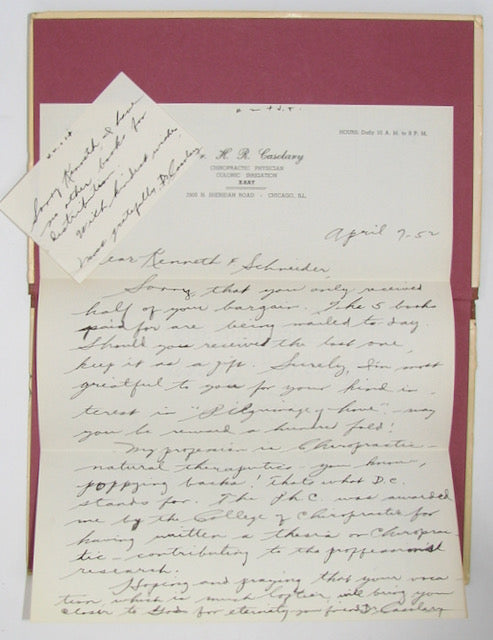 Sorry Kenneth - I have
no other books for
distribution.
With kindest
Most gratefully, Dr Casolary
HOURS: Daily 10 A. M. to 8 P. M.
r. H. R. Casolary
CHIROPRACTIC PHYSICIAN
COLONIC IRRIGATION
X-RAY
2800 N. SHERIDAN ROAD - CHICAGO, ILL.
April 7-52
Dear Kenneth F Schneider
Sorry, that you only received
half of your bargain. The 5 books
paid for are being mailed to day.
Should you received the lost one,
keep it as a gift. Surely, I'm most
greatful to you for your kind in-
terest in "Pilgrimage of love" - may
you be reward a hundred fold!
My profession is Chiropractic -
natural therapeutics - you know,
popping backs! thats what D.C.
stands for. The Ph C. was awarded
me by the College of Chiropractic for
having written a thesis on Chiroprac-
tic - contributing to the professional
research.
Hoping and praying that your voca-
tion which is much loftier, will bring you
closer to God for eternity your friend Dr Casolary